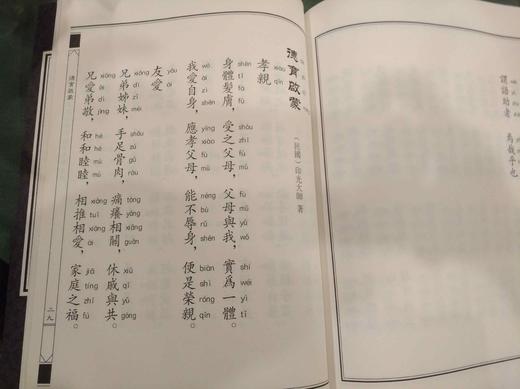 謂語助者 焉哉乎也
德育啟蒙
（民國）印光大師 著
xiào qīn
孝親
shēn tǐ fà fū shòu zhī fù mǔ fù mǔ yǔ wǒ shí wéi yì tǐ
身體髮膚，受之父母，父母與我，實為一體。
wǒ ài zì shēn yīng xiào fù mǔ néng bù rǔ shēn biàn shì róng qīn
我愛自身，應孝父母，能不辱身，便是榮親。
yǒu ài
友愛
xiōng dì zǐ mèi shǒu zú gǔ ròu tòng yǎng xiāng guān xiū qī yǔ gòng
兄弟姊妹，手足骨肉，痛癢相關，休戚與共。
xiōng ài dì jìng hé hé mù mù xiāng tuī xiāng ài jiā tíng zhī fú
兄愛弟敬，和和睦睦，相推相愛，家庭之福。
德育啟蒙
二九